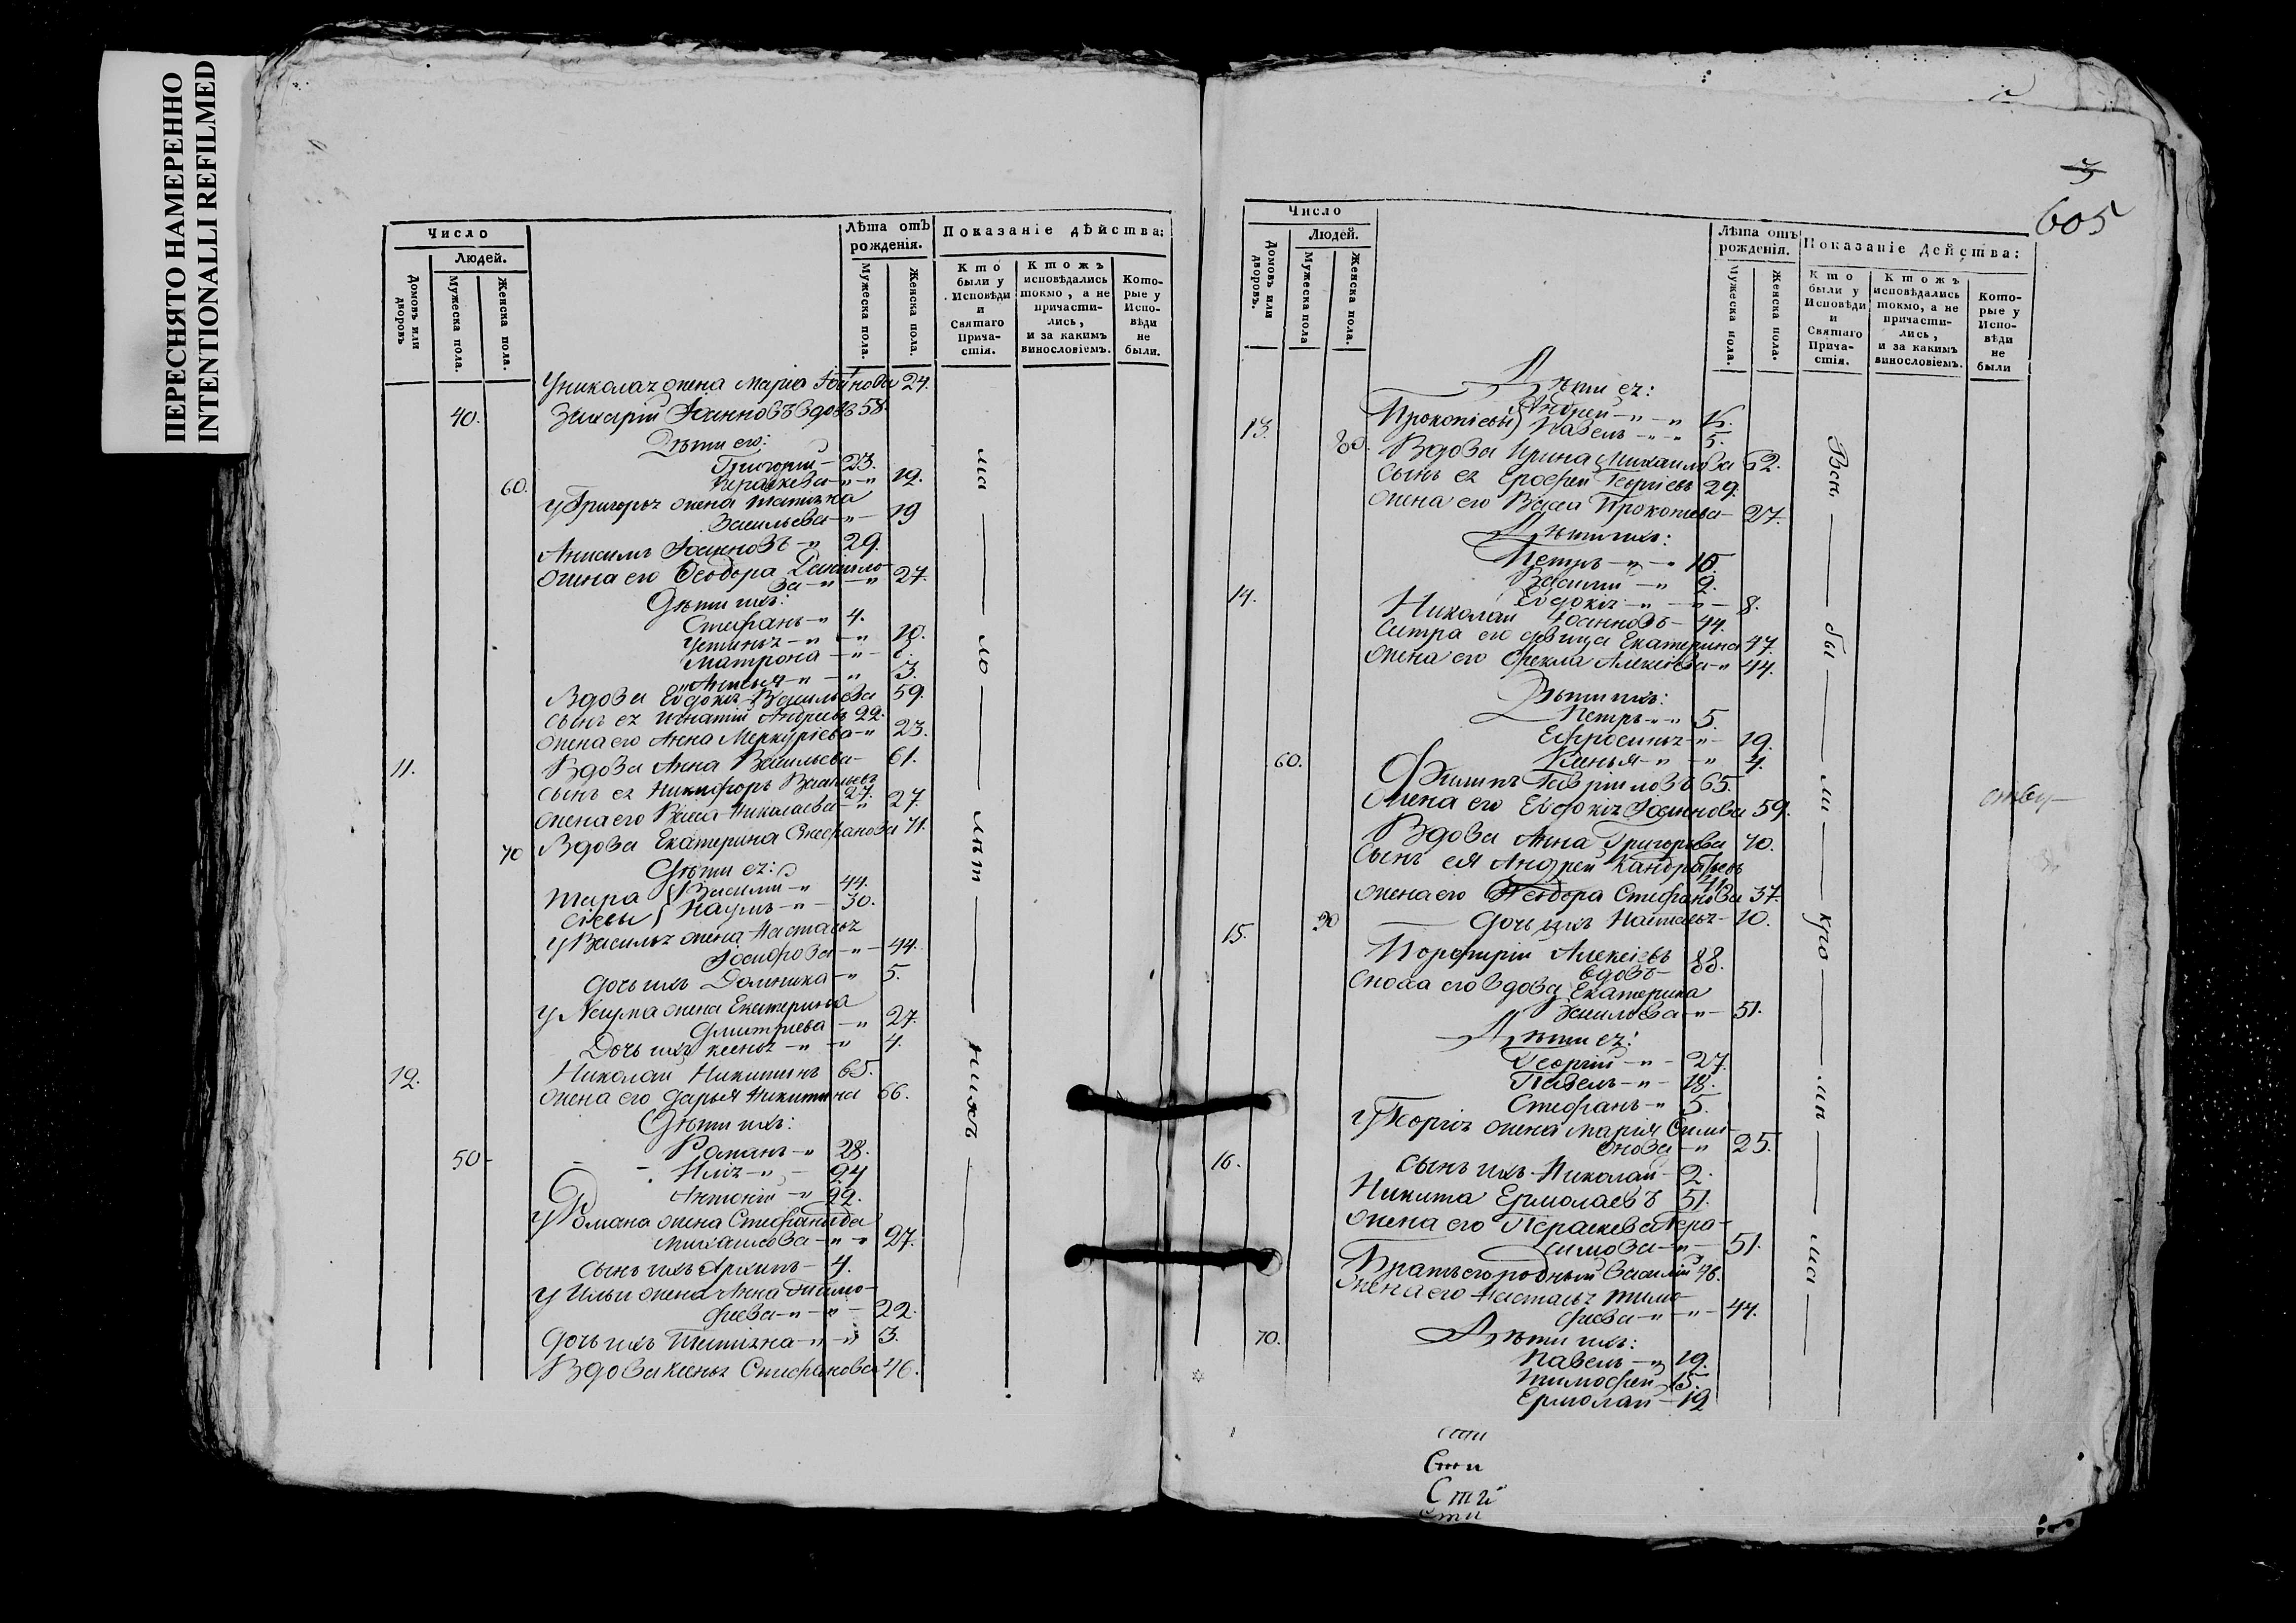 ПЕРЕСНЯТО НАМЕРЕННО
INTENTIONALLI REFILMED
Число
Людей.
Домовъ или дворовъ
Мужеска пола.
Женска пола.
Лѣта отъ рожденія.
Мужеска пола.
Женска пола.
Показаніе дѣйства:
Кто были у Исповѣди и Святаго Прича-стія.
Ктожъ исповѣдались токмо, а не причасти-лись, и за какимъ винословіемъ.
Кото-рые у Испо-вѣди не были.
У николая жена Марія 24.
40. Захарій Іоанновъ вдовъ 58.
Дѣти его:
Григорій - 23.
60. Параскева - " - " 19.
У Григорья жена Татіяна
Васильева - " - 19
Анисимъ Іоанновъ - " 29.
жена его Ѳеодора Данило-
ва - " - " 27.
Дѣти ихъ:
Стефанъ - " 4.
Устинья - " - " 10.
Матрона - " -
- " 3.
Вдова Евдокія Васильева 59.
сынъ ея Игнатій Андреевъ 22.
жена его Анна Меркуріева - " 23.
11. Вдова Анна Васильева - 61.
сынъ ея Никифоръ
27.
жена его Васса Николаева - " 27.
70 Вдова Екатерина Стефанова 71.
Дѣти ея:
Тара Василій - " 44.
сіевы Наумъ - " - 30.
У Василья жена Настасья
Іосифова - " - 44.
дочь ихъ Домника - " 5.
У Наума жена Екатерина
Дмитріева - " 27.
Дочь ихъ Ксенья - " - " 4.
12. Николай Никитинъ 65.
жена его Дарья Никитина 66.
Дѣти ихъ:
50 - Романъ - " 28.
Илія - " - 24
Антоній - " 22.
У Романа жена Стефанида
Михаилова - " - " 27.
сынъ ихъ Архипъ - 4.
У Ильи жена Анна Тимо-
феева - " - " - 22.
дочь ихъ Татіяна - " - " 3.
Вдова Ксенья Стефанова 46.
ма — ло — лѣт — нихъ
3
605
Число
Людей.
Домовъ или дворовъ.
Мужеска пола
Женска пола.
Лѣта отъ рожденія.
Мужеска пола.
Женска пола.
Показаніе дѣйства:
Кто были у Исповѣди и Святаго Прича-стія.
Ктожъ исповѣдались токмо, а не причасти-лись, и за какимъ винословіемъ.
Кото-рые у Испо-вѣди не были
Дѣти ея:
Андрей - " - "
Прокопіевы Павелъ - " - " 5.
13. 80. Вдова Ирина Михаилова 62.
сынъ ея Ерофей Георгіевъ 29.
жена его Васса Прокопіева - 27.
Дѣти ихъ:
Петръ - " - " 10.
Василій - " 2.
Евдокія - " - " - 8.
14. Николай Іоанновъ - 44.
Сестра его дѣвица Екатерина 47.
жена его Фекла Алексѣева - " 44.
Дѣти ихъ:
Петръ - " - " 5.
Ефросинья - " - 19.
Ксенья - " - " 4.
60. Филипъ Гавріиловъ 65.
жена его Евдокія Іоаннова 59.
Вдова Анна Григорьева 70.
Сынъ ея Андрей Кандратьевъ
41
жена его Ѳеодора Стефанова 37.
90 дочь ихъ Настасья - 10.
15. Порфирій Алексіевъ
вдовъ - 88.
сноха его вдова Екатерина
Васильева - " - 51.
Дѣти ея:
Георгій - " - 27.
Павелъ - " - 18.
Стефанъ - " 5.
У Георгія жена Марья Симе-
онова - " 25.
сынъ ихъ Николай - 2.
16. Никита Ермолаевъ 51.
жена его Параскева Гера-
симова - " - 51.
Братъ его родный Василій 46.
жена его Настасья Тимо-
феева - " - " - 44.
70. Дѣти ихъ:
Павелъ - " 19.
Тимофей 15.
Ермолай - 12
Всѣ — бы — ли — кро — мѣ — ма —
Сти
Сти
Сти